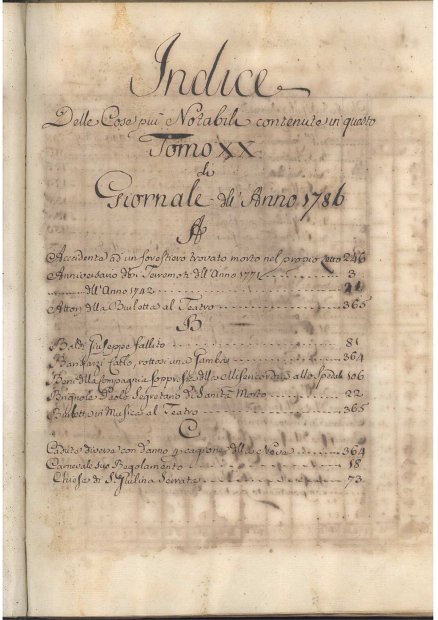 Indice
Delle Cose più Notabili contenute in questo
Tomo XX
di
Giornale dell' Anno 1786
A
Accidente ad un forestiero trovato morto nel proprio letto 246
Anniversario dei Terremoti dell' Anno 1771 3
dell' Anno 1742
Attori della Burletta al Teatro 365
B
Giuseppe fallito 81
Carlo, rottasi una Gamba 364
Beni della Compagnia soppressa della Misericordia allo Spedale 106
Brignole Paolo Segretario di Sanità Morto 22
Burletta in Musica al Teatro 365
C
Cadute diverse con danno p cagione della Neve 364
Carnevale suo Regolamento 18
Chiesa di S. Giulina Serrata 73